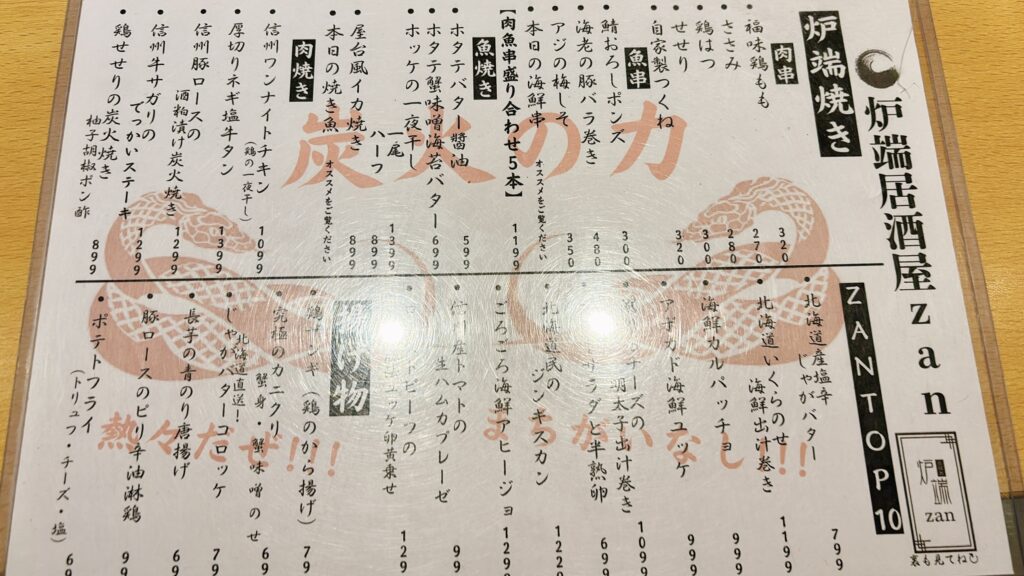 炉端居酒屋zan
炉端
zan
裏も見てね
炉端焼き
肉串
・福味鶏もも 320
・ささみ 270
・鶏はつ 280
・せせり 300
・自家製つくね 320
魚串
・鯖おろしポンズ 300
・海老の豚バラ巻き 480
・アジの梅しそ 350
・本日の海鮮串 オススメをご覧ください
【肉魚串盛り合わせ5本】 1199
魚焼き
・ホタテバター醤油 599
・ホタテ蟹味噌海苔バター 699
・ホッケの一夜干し
一尾 1399
ハーフ 899
・屋台風イカ焼き 899
・本日の焼き魚 オススメをご覧ください
肉焼き
・信州ワンナイトチキン 1099
(鶏の一夜干し)
・厚切りネギ塩牛タン 1399
・信州豚ロースの
酒粕漬け炭火焼き 1299
・信州牛サガリの
でっかいステーキ 1299
・鶏せせりの炭火焼き
柚子胡椒ポン酢 899
炭火の力
ZAN TOP 10
・北海道産塩辛
じゃがバター 799
・北海道いくらのせ
海鮮出汁巻き 1199
・海鮮カルパッチョ 999
・アボカド海鮮ユッケ 999
チーズの
明太子出汁巻き 1099
サラダと半熟卵 699
・北海道民の
ジンギスカン 1299
・ごろごろ海鮮アヒージョ 1299
産トマトの
生ハムカプレーゼ 99
ユッケ卵黄乗せ 129
揚げ物
・鶏ザンギ(鶏のから揚げ) 79
・究極のカニクリ
蟹身・蟹味噌のせ 69
・北海道直送!
じゃがバターコロッケ 79
・長芋の青のり唐揚げ 69
・豚ロースのピリ辛油淋鶏 99
・ポテトフライ 69
(トリュフ・チーズ・塩)
熱々だぜ!!!
まちがいなし!!!